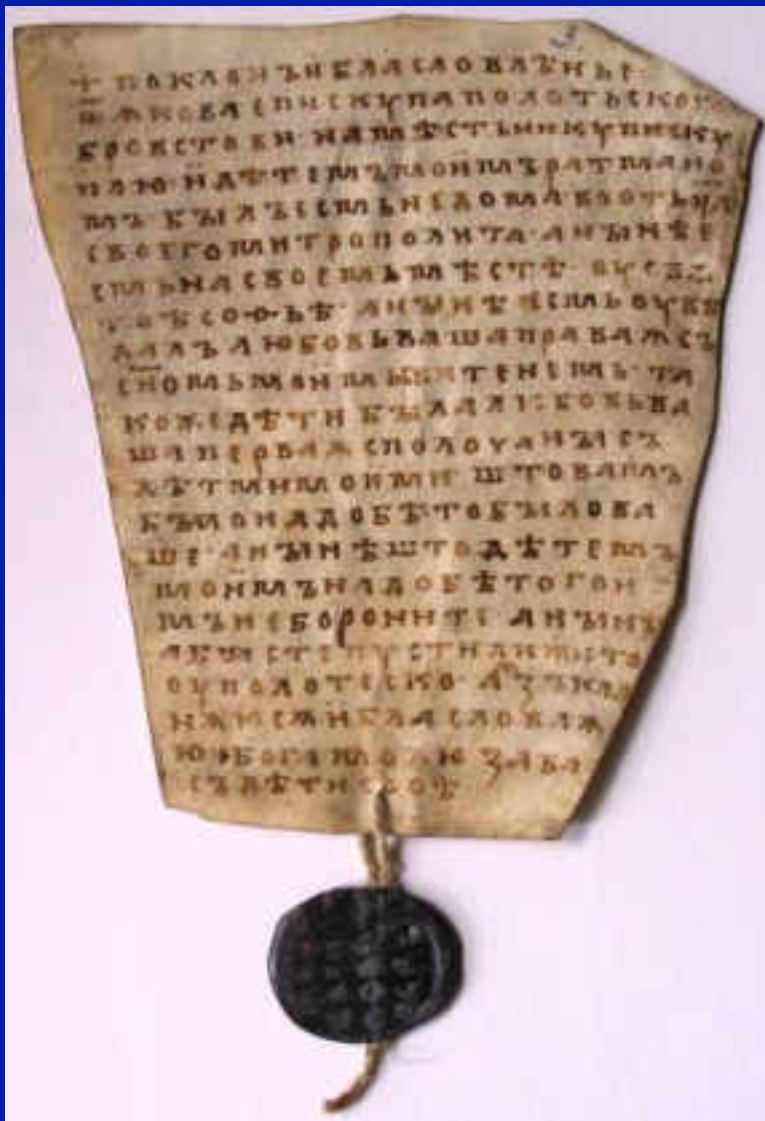 + ПОКЛОНЪ И БЛАСЛОВЛѢНЬЕ
Ѿ ꙖКОВА ЕПИСКУПА ПОЛОТЬСКОГ
БРОВСТОВИ · НАМѢСТЬНИКУ ПИСКУ
ПЛЮ · И ДѢТЕМЪ МОИМЪ РАТМАНО
МЪ · БЫЛЪ ЕСМЬ НЕ ДОМА В ОТЬЦА
СВОЕГО МИТРОПОЛИТА · А НЫНѢ Е
СМЬ НА СВОЕМЬ МѢСТѢ · ОУ СВ
ТОѢ СОФЬѢ · А НЫНѢ ЕСМЬ ОУВѢ
ДАЛЪ ЛЮБОВЬ ВАША ПРАВАꙖ СЪ
СН҃ОМЬ МОИМЬ ВИТЕНЕМЬ · ТА
КО ЖЕ ДѢТИ БЫЛА ЛЮБОВЬ ВА
ША ПЕРВАꙖ С ПОЛОЧАНЫ СЪ
ДѢТМИ МОИМИ · ШТО ВАМЪ
БЫЛО НАДОБѢ ТО БЫЛО ВА
ШЕ · А НЫНѢ ШТО ДѢТЕМЪ
МОИМЪ НАДОБѢ ТОГО И
МЪ НЕ БОРОНИТЕ А НЫНѢ
АБЫ СТЕ ПУСТИЛИ ЖИТО
ОУ ПОЛОТЕСКО · АЗЪ КЛА
НꙖЮСѦ И БЛАСЛОВЛꙖ
Ю И БОГА МОЛЮ ЗА ВА
СЪ ДѢТИ СВОѢ